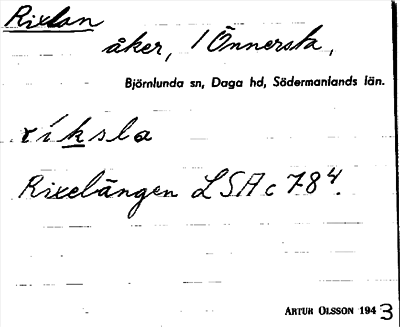 Rixlan
åker, 1 Önnersta,
Björnlunda sn, Daga hd, Södermanlands län.
ríksla
Rixelängen LSA c 784.
ARTUR OLSSON 1943